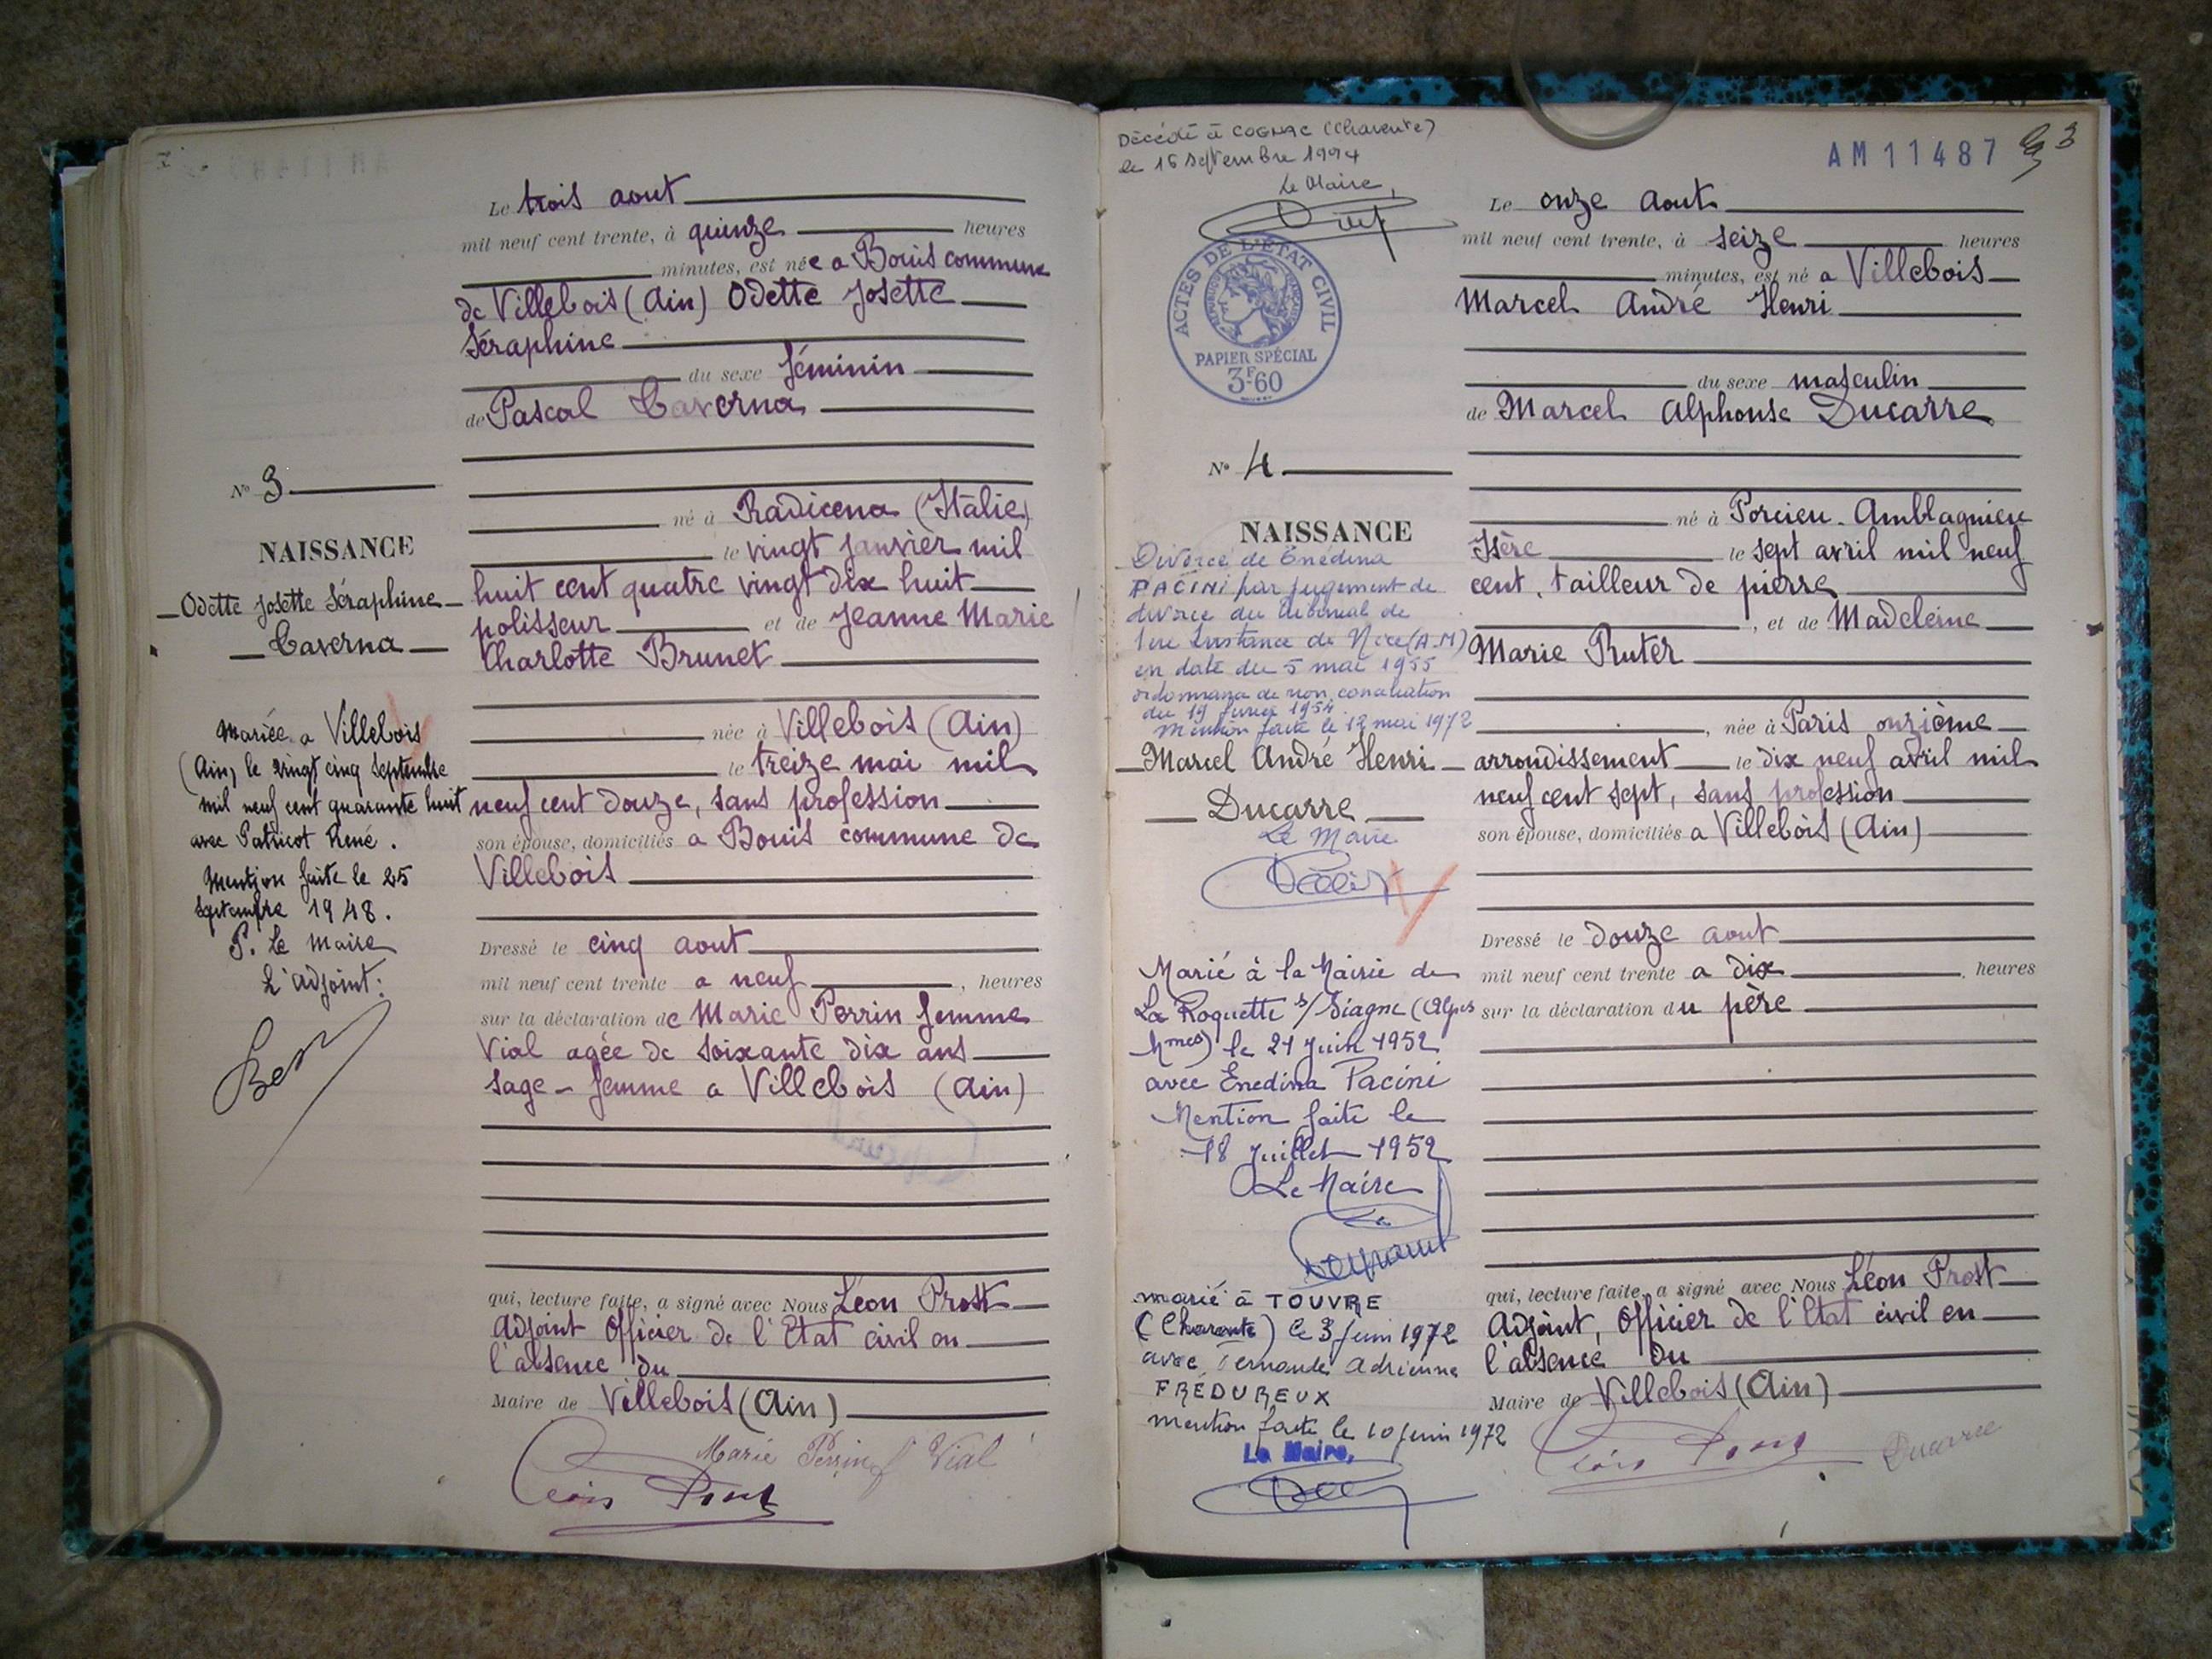 Le trois aout
mil neuf cent trente, à quinze heures
minutes, est née a Bouis commune
de Villebois (Ain) Odette Josette
Séraphine
du sexe féminin
de Pascal Caverna
né à Radicena (Italie)
le vingt janvier mil
huit cent quatre vingt dix huit
polisseur et de Jeanne Marie
Charlotte Brunet
née à Villebois (Ain)
le treize mai mil
neuf cent douze, sans profession
son épouse, domiciliés a Bouis commune de
Villebois
Dressé le cinq aout
mil neuf cent trente a neuf, heures
sur la déclaration de Marie Perrin femme
Vial agée de soixante dix ans
sage-femme a Villebois (Ain)
qui, lecture faite, a signé avec Nous Léon Prost
Adjoint Officier de l'Etat civil en
l'absence du
Maire de Villebois (Ain)
Marie Perrin f Vial
Nº 3
NAISSANCE
Odette Josette Séraphine
Caverna
Mariée a Villebois
(Ain) le vingt cinq Septembre
mil neuf cent quarante huit
avec Patricot René.
Mention faite le 25
septembre 1948.
P. Le Maire
L'adjoint:
Décédé à COGNAC (Charente)
le 16 septembre 1994
Le Maire,
ACTES DE L'ETAT CIVIL
PAPIER SPÉCIAL
3F60
Nº 4
NAISSANCE
Divorcé de Enédina
PACINI par jugement de
divorce du tribunal de
1ere Instance de Nice (A.M)
en date du 5 mai 1955
ordonnance de non conciliation
du 19 fevrier 1954
Mention faite le 12 mai 1972
Marcel André Henri
Ducarre
Le Maire
Marié à la Mairie de
La Roquette s/ Siagne (Alpes
Mmes) le 21 Juin 1952
avec Enedina Pacini
Mention faite le
18 Juillet 1952
Le Maire
marié à TOUVRE
(Charente) le 3 juin 1972
avec Fernande Adrienne
FRÉDUREUX
mention faite le 10 juin 1972
Le Maire,
AM11487
3
Le onze Aout
mil neuf cent trente, à seize heures
minutes, est né a Villebois
Marcel André Henri
du sexe masculin
de Marcel Alphonse Ducarre
né à Porcieu-Amblagnieu
Isère le sept avril mil neuf
cent, tailleur de pierre
, et de Madeleine
Marie Ruter
, née à Paris onzième
arrondissement le dix neuf avril mil
neuf cent sept, sans profession
son épouse, domiciliés a Villebois (Ain)
Dressé le douze aout
mil neuf cent trente a dix, heures
sur la déclaration du père
qui, lecture faite, a signé avec Nous Léon Prost
Adjoint, Officier de l'Etat civil en
l'absence du
Maire de Villebois (Ain)
Ducarre